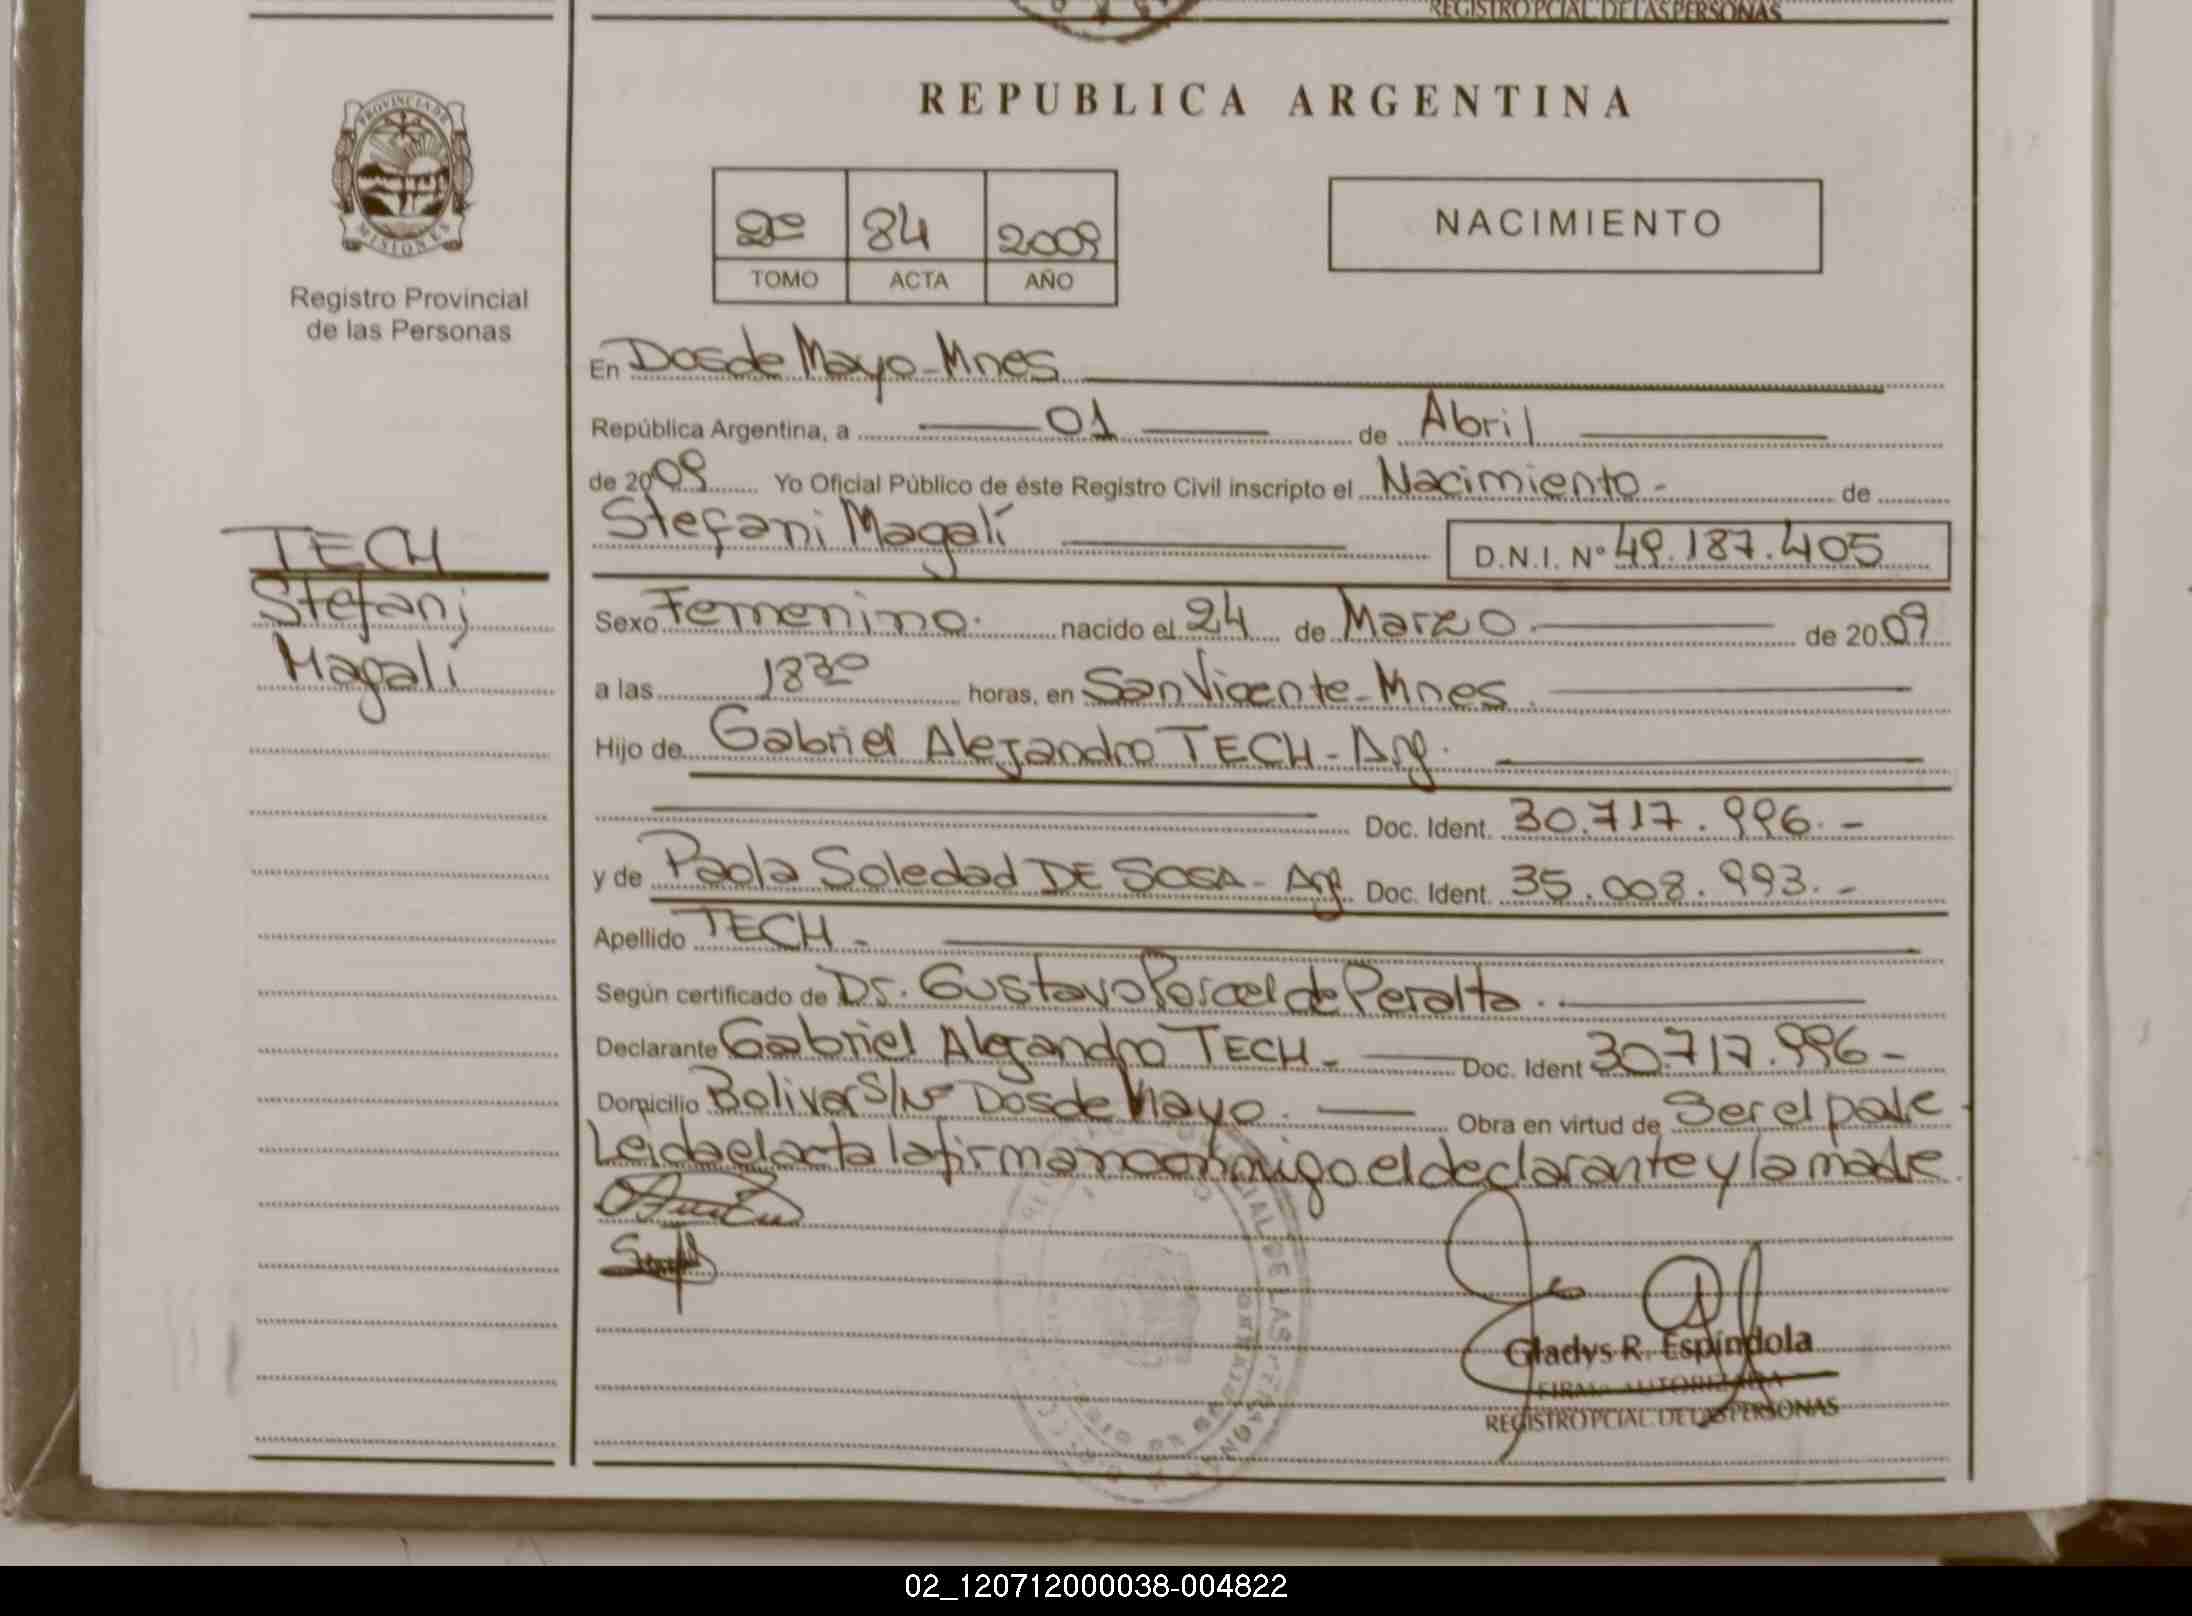 REGISTRO PCIAL. DE LAS PERSONAS
PROVINCIA DE
MISIONES
Registro Provincial
de las Personas
REPUBLICA ARGENTINA
2º 84 2009
TOMO ACTA AÑO
NACIMIENTO
En Dos de Mayo - Mnes
República Argentina, a 01 de Abril
de 2009 Yo Oficial Público de éste Registro Civil inscripto el Nacimiento - de
Stefani Magalí D.N.I. Nº 49.187.405
TECH
Stefani
Magalí
Sexo Femenino. nacido el 24 de Marzo de 2009
a las 18³⁰ horas, en San Vicente - Mnes.
Hijo de Gabriel Alejandro TECH - Arg.
Doc. Ident. 30.717.996.-
y de Paola Soledad DE SOSA - Arg. Doc. Ident. 35.008.993.-
Apellido TECH -
Según certificado de Dr. Gustavo Porcel de Peralta.
Declarante Gabriel Alejandro TECH - Doc. Ident 30.717.996 -
Domicilio Bolivar S/Nº Dos de Mayo. Obra en virtud de Ser el padre
Leida el acta la firman conmigo el declarante y la madre
Gladys R. Espíndola
FIRMA AUTORIZADA
REGISTRO PCIAL. DE LAS PERSONAS
02_120712000038-004822